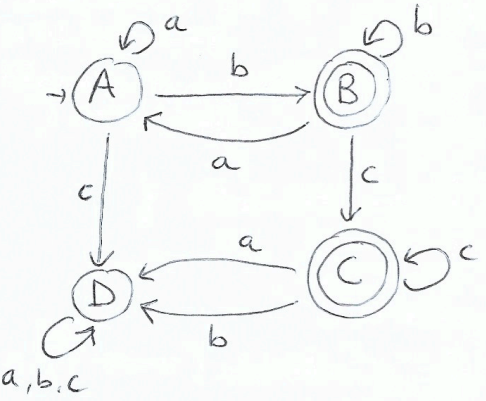 a
b
A
b
B
a
c
c
D
a
C
c
b
a, b, c